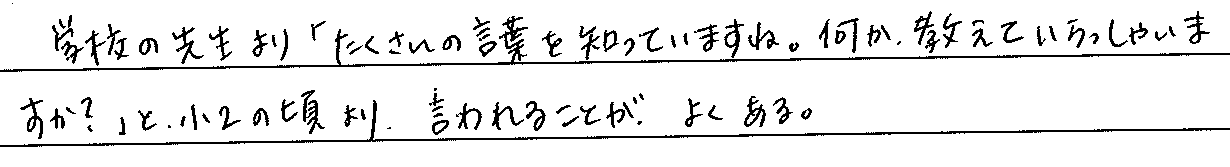 学校の先生より「たくさんの言葉を知っていますね。何か、教えていらっしゃいま
すか?」と、小2の頃より、言われることが、よくある。